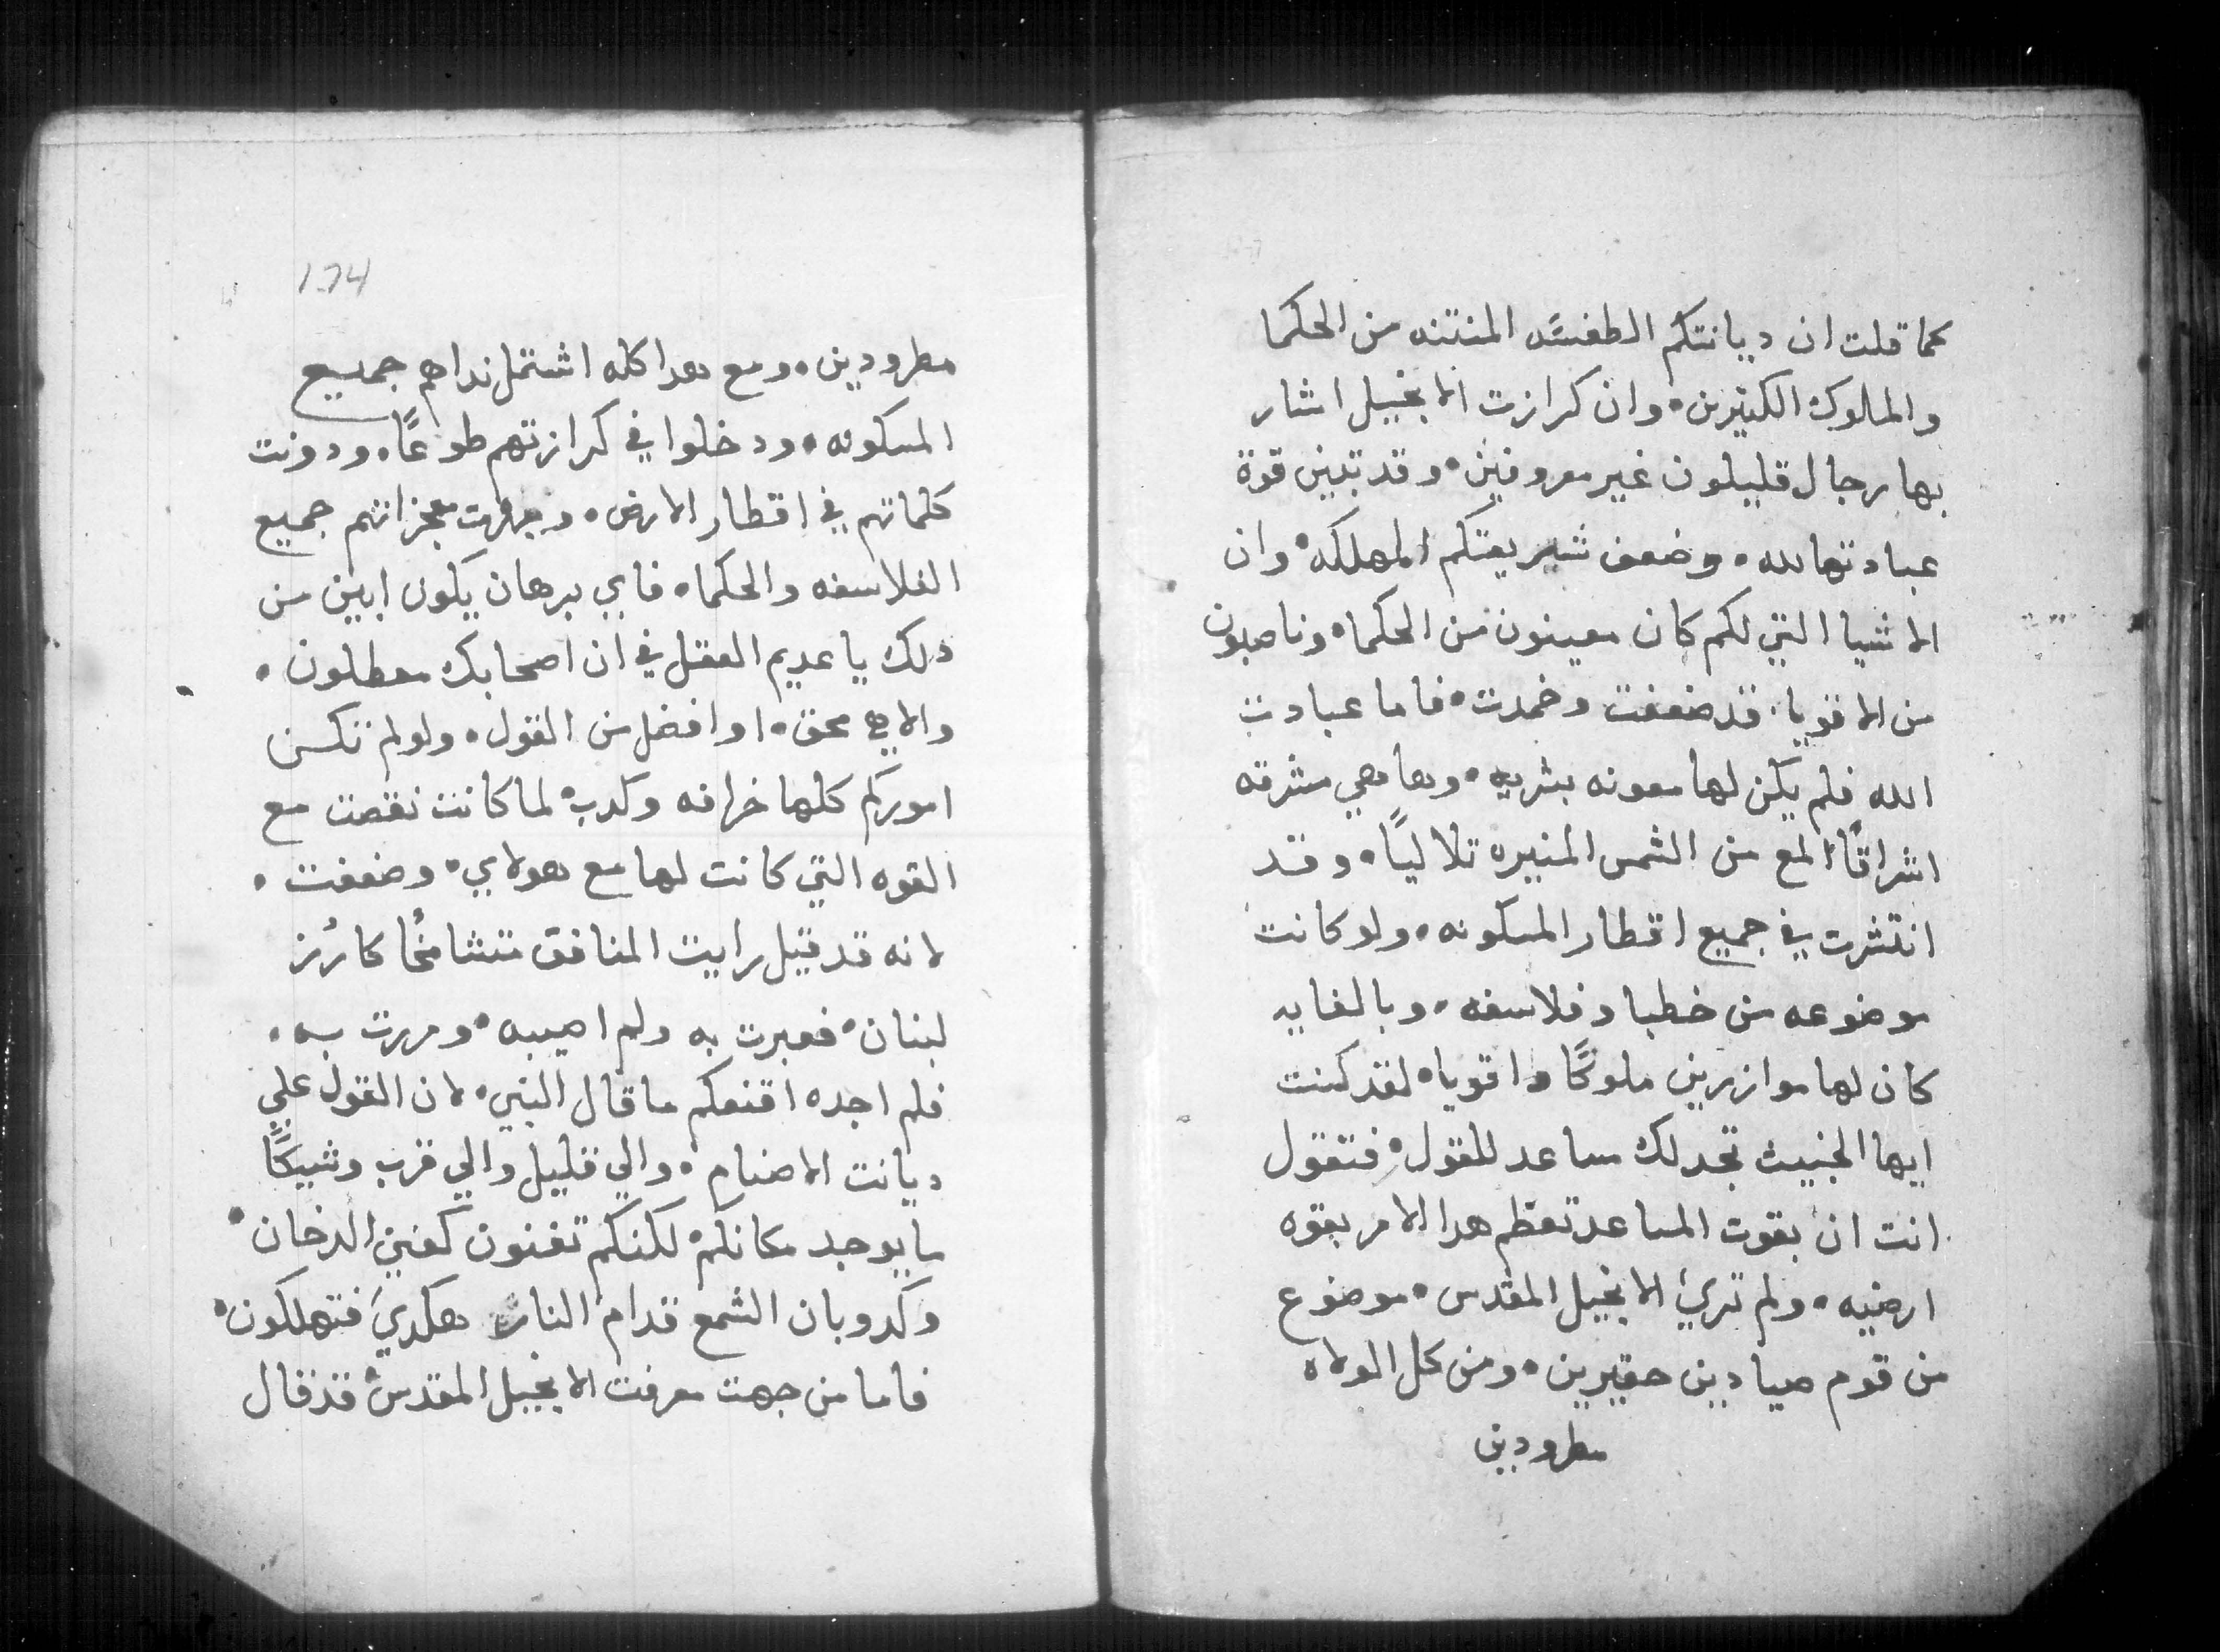 كما قلت ان ديانتكم الطفسه المنتنه من الحكما
والملوك الكثيرين • وان كرازت الانجيل اشار
بها رجال قليلون غير معروفين • وقد تبين قوة
عبادتها لله • وضعف شريعتكم المهلكه • وان
الاشيا التي لكم كان معينون من الحكما • وناصبون
من الاقويا • قد ضعفت وخمدت • فاما عبادت
الله فلم يكن لها معونه بشريه • وها هي مشرقه
اشراقًا المع من الشمس المنيره تلاليًا • وقد
انتشرت في جميع اقطار المسكونه • ولو كانت
موضوعه من خطبا وفلاسفه • وبالغايه
كان لها موازرين ملوكًا واقويا • لقد كنت
ايها الخبيث تجد لك ساعد للقول • فتقول
انت ان بقوت المساعد تعظم هدا الامر بقوه
ارضيه • ولم تري الانجيل المقدس • موضوع
من قوم صيادين حقيرين • ومن كل الولاه
مطرودين
174
مطرودين • ومع هدا كله اشتمل نداهم جميع
المسكونه • ودخلوا في كرازتهم طوعًا • ودونت
كلماتهم في اقطار الارض • وبهرت معجزاتهم جميع
الفلاسفه والحكما • فاي برهان يكون ابين من
دلك يا عديم العقل في ان اصحابك معطلون •
والاهي محق • اوافضل من القول • ولو لم تكن
اموركم كلها خرافه وكدب • لما كانت نقصت مع
القوه التي كانت لها مع هولاي • وضعفت •
لانه قد قيل رايت المنافق متشامخًا كارز
لبنان • فعبرت به ولم اصيبه • ومررت به •
فلم اجده اقنعكم ما قال النبي • لان القول علي
ديانت الاصنام • والي قليل والي قرب وشيكًا
ما يوجد مكانكم • لكنكم تفنون كفني الدخان •
وكدوبان الشمع قدام النار هكدي فتهلكون •
فاما من جهت معرفت الانجيل المقدس • قد قال